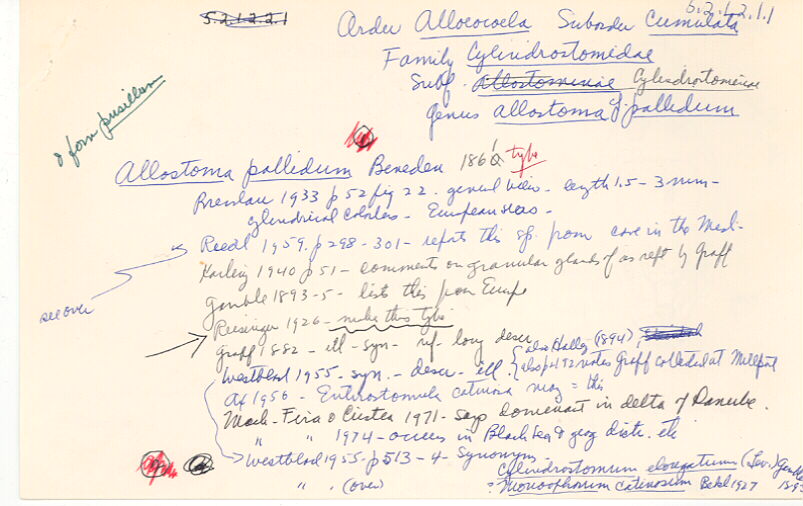 5.2.1.2.2.1
5.2.1.2.1.1
Order Allococoela Suborder Cumulata
Family Cylindrostomidae
Subf. Allostominae Cylindrostominae
genus Allostoma f. pallidum
& form pusillum
Allostoma pallidum Beneden 1861 type
Bresslau 1933 p 52 fig 22. general view. length 1.5 - 3 mm -
cylindrical colorless - European seas -
Riedl 1959. p 298 - 301 - reports this sp. from cave in the Med. -
Karling 1940 p 51 - comments on granular glands of as reft by Graff
see over
Gamble 1893-5 - lists this from Europe
Reisinger 1926 - makes this type
Graff 1882 - ill - syn - ref - long descr
also Hallez (1894),
Westblad 1955 - syn. - descr - ill. also p 492 notes Graff collected at Millport
Ax 1956 - Enterostomula catinosa may = this
Mack-Fira & Cristea 1971 - says dominant in delta of Danube.
" " 1974 - occurs in Black Sea & geog distr. etc
Westblad 1955 - p 513 - 4 - Synonyms
Cylindrostomum elongatum (Lev.) Gamble
" . (over)
= Monoophorum catinosum Bekl 1927